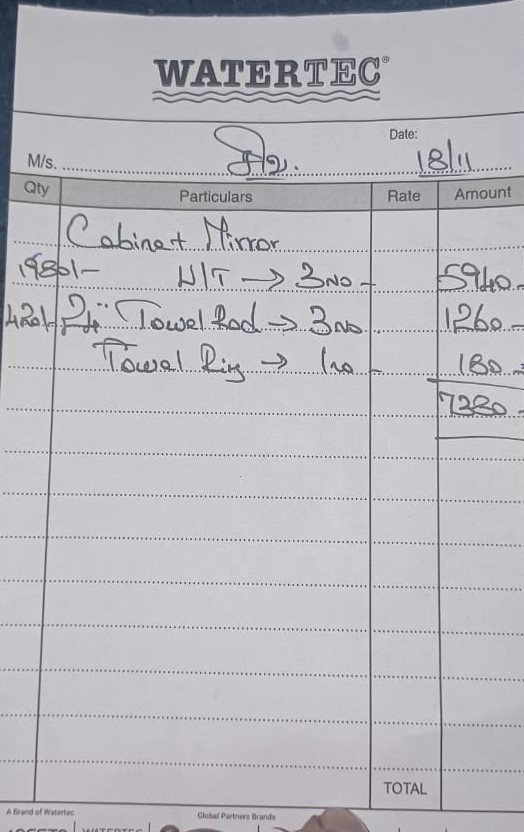 WATERTEC®
Date:
M/s. 18/11
Qty Particulars Rate Amount
Cabinet Mirror
1980/- N/T → 3 No - 5940 -
420/- 24" Towel Rod → 3 No. 1260 -
Towel Ring → 1 no - 180 -
7380 -
TOTAL
A Brand of Watertec Global Partners Brands